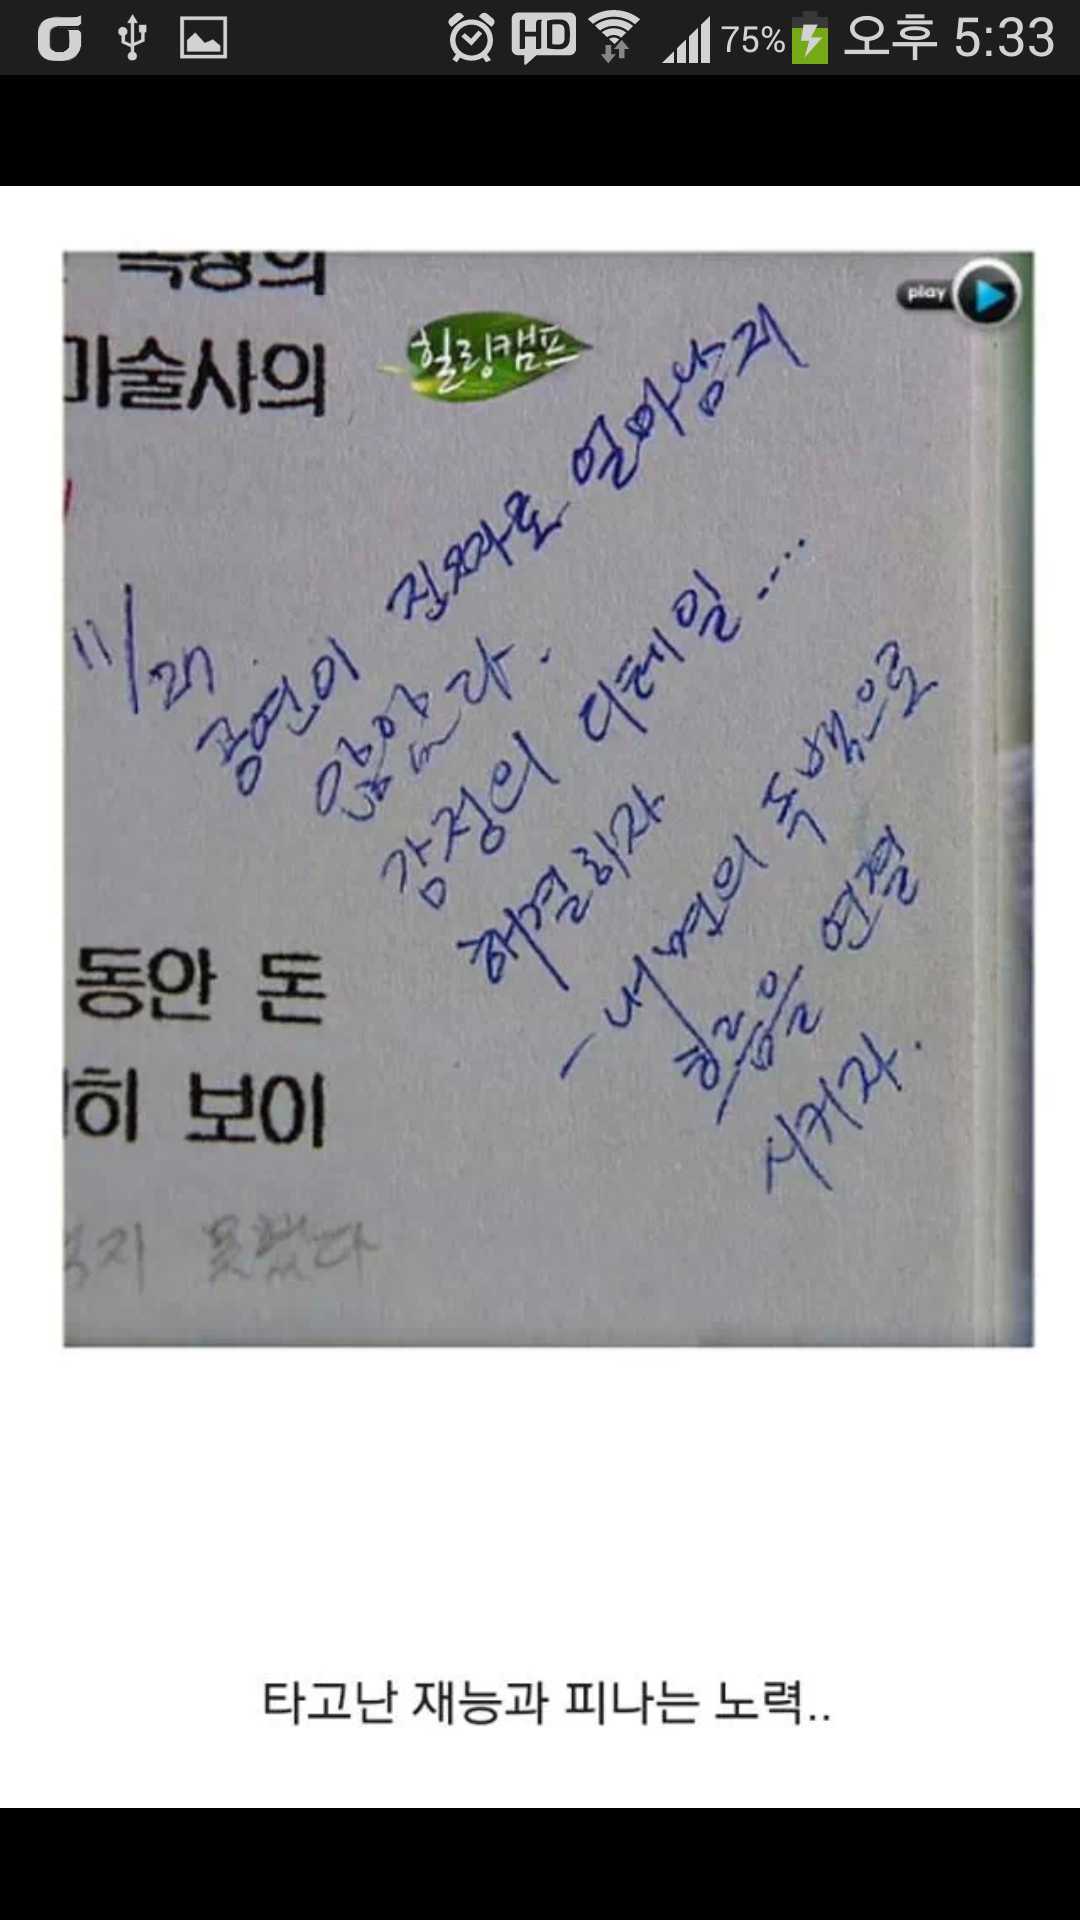 75% 오후 5:33
play
마술사의
힐링캠프
11/27
공연이 진짜로 얼마남지
않았다.
감정의 디테일....
해결하자
-내면의 독백으로
흐름을 연결
시키자.
동안 돈
히 보이
못했다
타고난 재능과 피나는 노력..